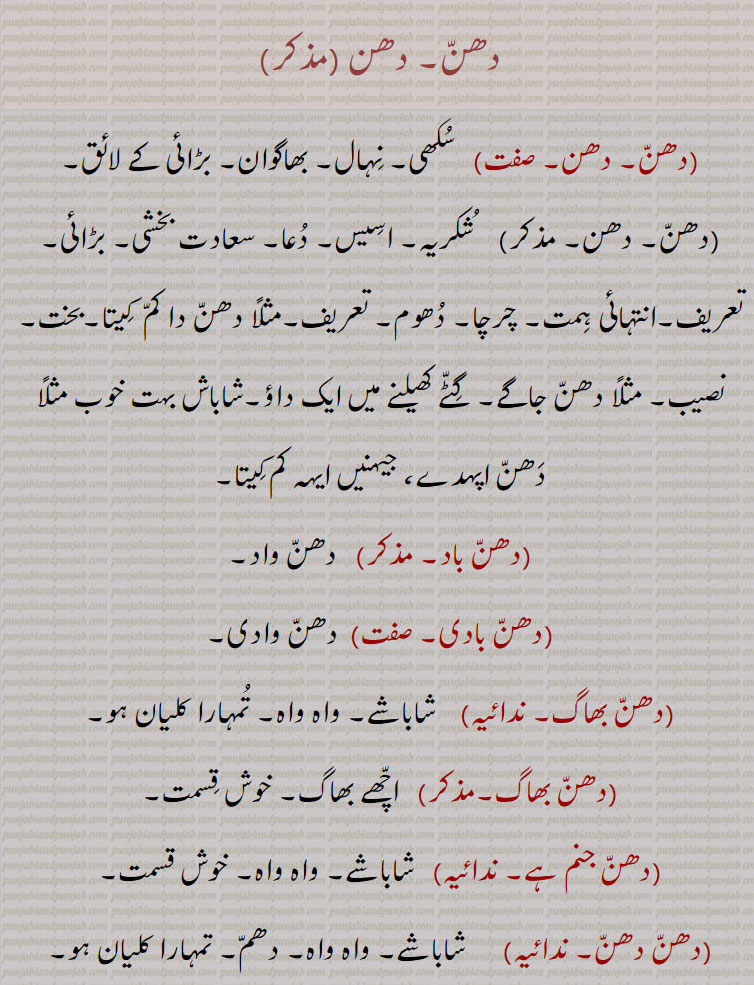 دھنّ۔ دھن (مذکر)
(دھنّ۔ دھن۔ صفت) سُکھی۔ نِہال۔ بھاگوان۔ بڑائی کے لائق۔
(دھنّ۔ دھن۔ مذکر) شُکریہ۔ اسِیس۔ دُعا۔ سعادت بخشی۔ بڑائی۔
تعریف۔انتہائی ہِمت۔ چرچا۔ دُھوم۔ تعریف۔مثلاً دھنّ دا کمّ کِیتا۔بخت۔
نصیب۔ مثلاً دھنّ جاگے۔ گِٹّے کھیلنے میں ایک داؤ۔شاباش بہت خوب مثلاً
دَھنّ اپہدے، جیہنیں ایہہ کم کِیتا۔
(دھنّ باد۔ مذکر) دھنّ واد۔
(دھنّ بادی۔ صفت) دھنّ وادی۔
(دھنّ بھاگ۔ ندائیہ) شاباشے۔ واہ واہ۔ تُمہارا کلیان ہو۔
(دھنّ بھاگ۔مذکر) اچّھے بھاگ۔ خوش قِسمت۔
(دھنّ جنم ہے۔ ندائیہ) شاباشے۔ واہ واہ۔ خوش قسمت۔
(دھنّ دھنّ۔ ندائیہ) شاباشے۔ واہ واہ۔ دھمّ۔ تمہارا کلیان ہو۔
punjabiandpunjab.com